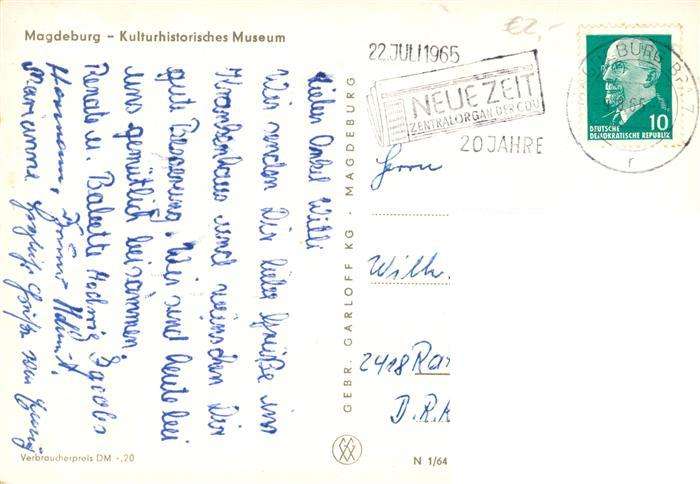 Magdeburg – Kulturhistorisches Museum
€2,-
22.JULI 1965
NEUE ZEIT
ZENTRALORGAN DER CDU
20 JAHRE
10
DEUTSCHE
DEMOKRATISCHE REPUBLIK
MAGDEBURG
r
Lieber Onkel Willi
Wir senden Dir liebe Grüße ins
Krankenhaus und wünschen Dir
gute Besserung. Wir sind heute bei
uns gemütlich beisammen.
Renate u. Babette Hedwig Jacobs
Hermann,
Marianne Grüße von
GEBR. GARLOFF KG - MAGDEBURG
Herrn
Wilh.
2418 Rat
D.R.K
Verbraucherpreis DM -,20
N 1/64